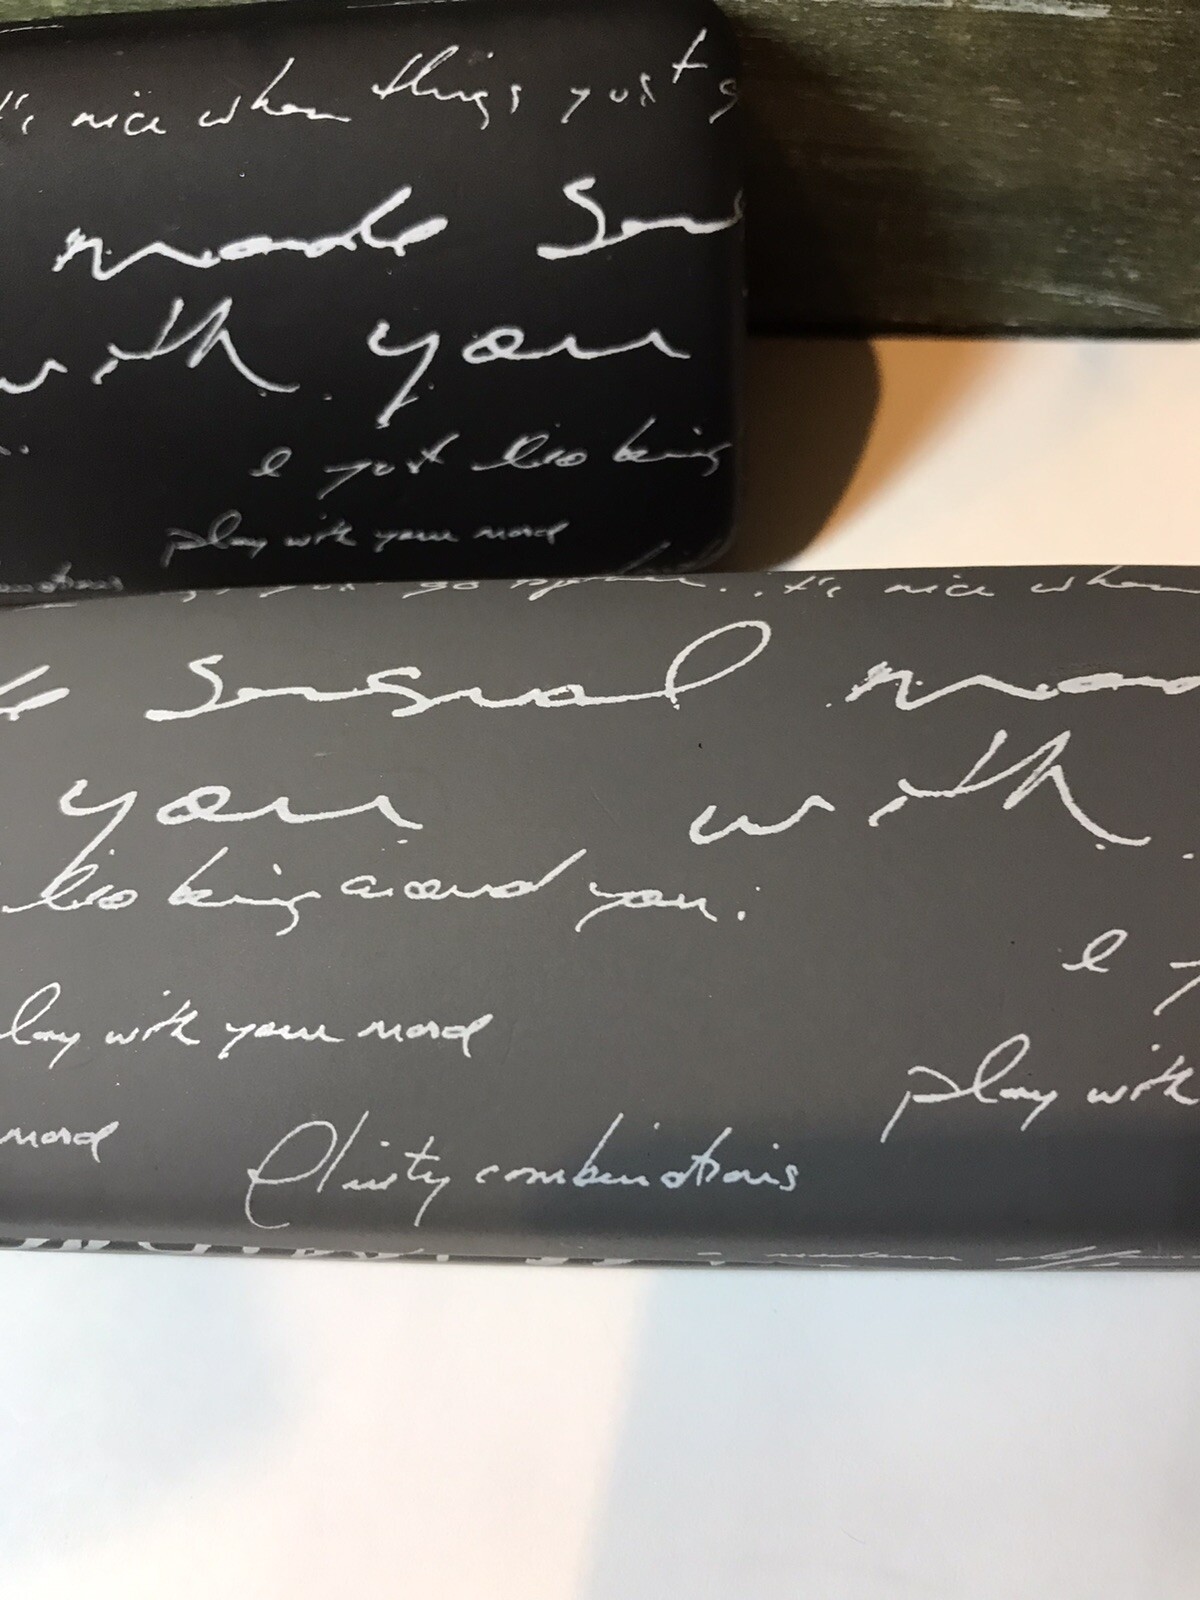 it's nice when things just g
made Sens
with you
I just like being
play with your mind
go together.. it's nice when
Sensual mo
you with
like being around you.
I
play with your mind
play with
mind
flirty combinations